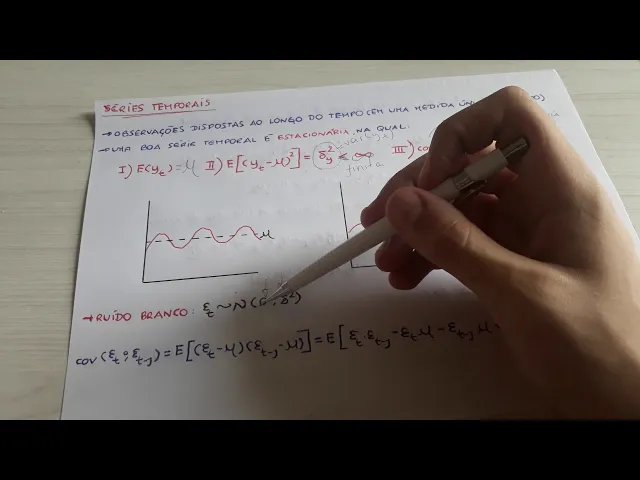 SÉRIES TEMPORAIS
→ OBSERVAÇÕES DISPOSTAS AO LONGO DO TEMPO (EM UMA MEDIDA
→ UMA BOA SÉRIE TEMPORAL É ESTACIONÁRIA, NA QUAL:
I) E(y_t) = μ II) E[(y_t - μ)²] = σ²_y < ∞ III)
finita
μ
→ RUÍDO BRANCO: ε_t ~ N( , σ²)
COV(ε_t; ε_t-j) = E[(ε_t - μ)(ε_t-j - μ)] = E[ε_t · ε_t-j - ε_t μ - ε_t-j μ